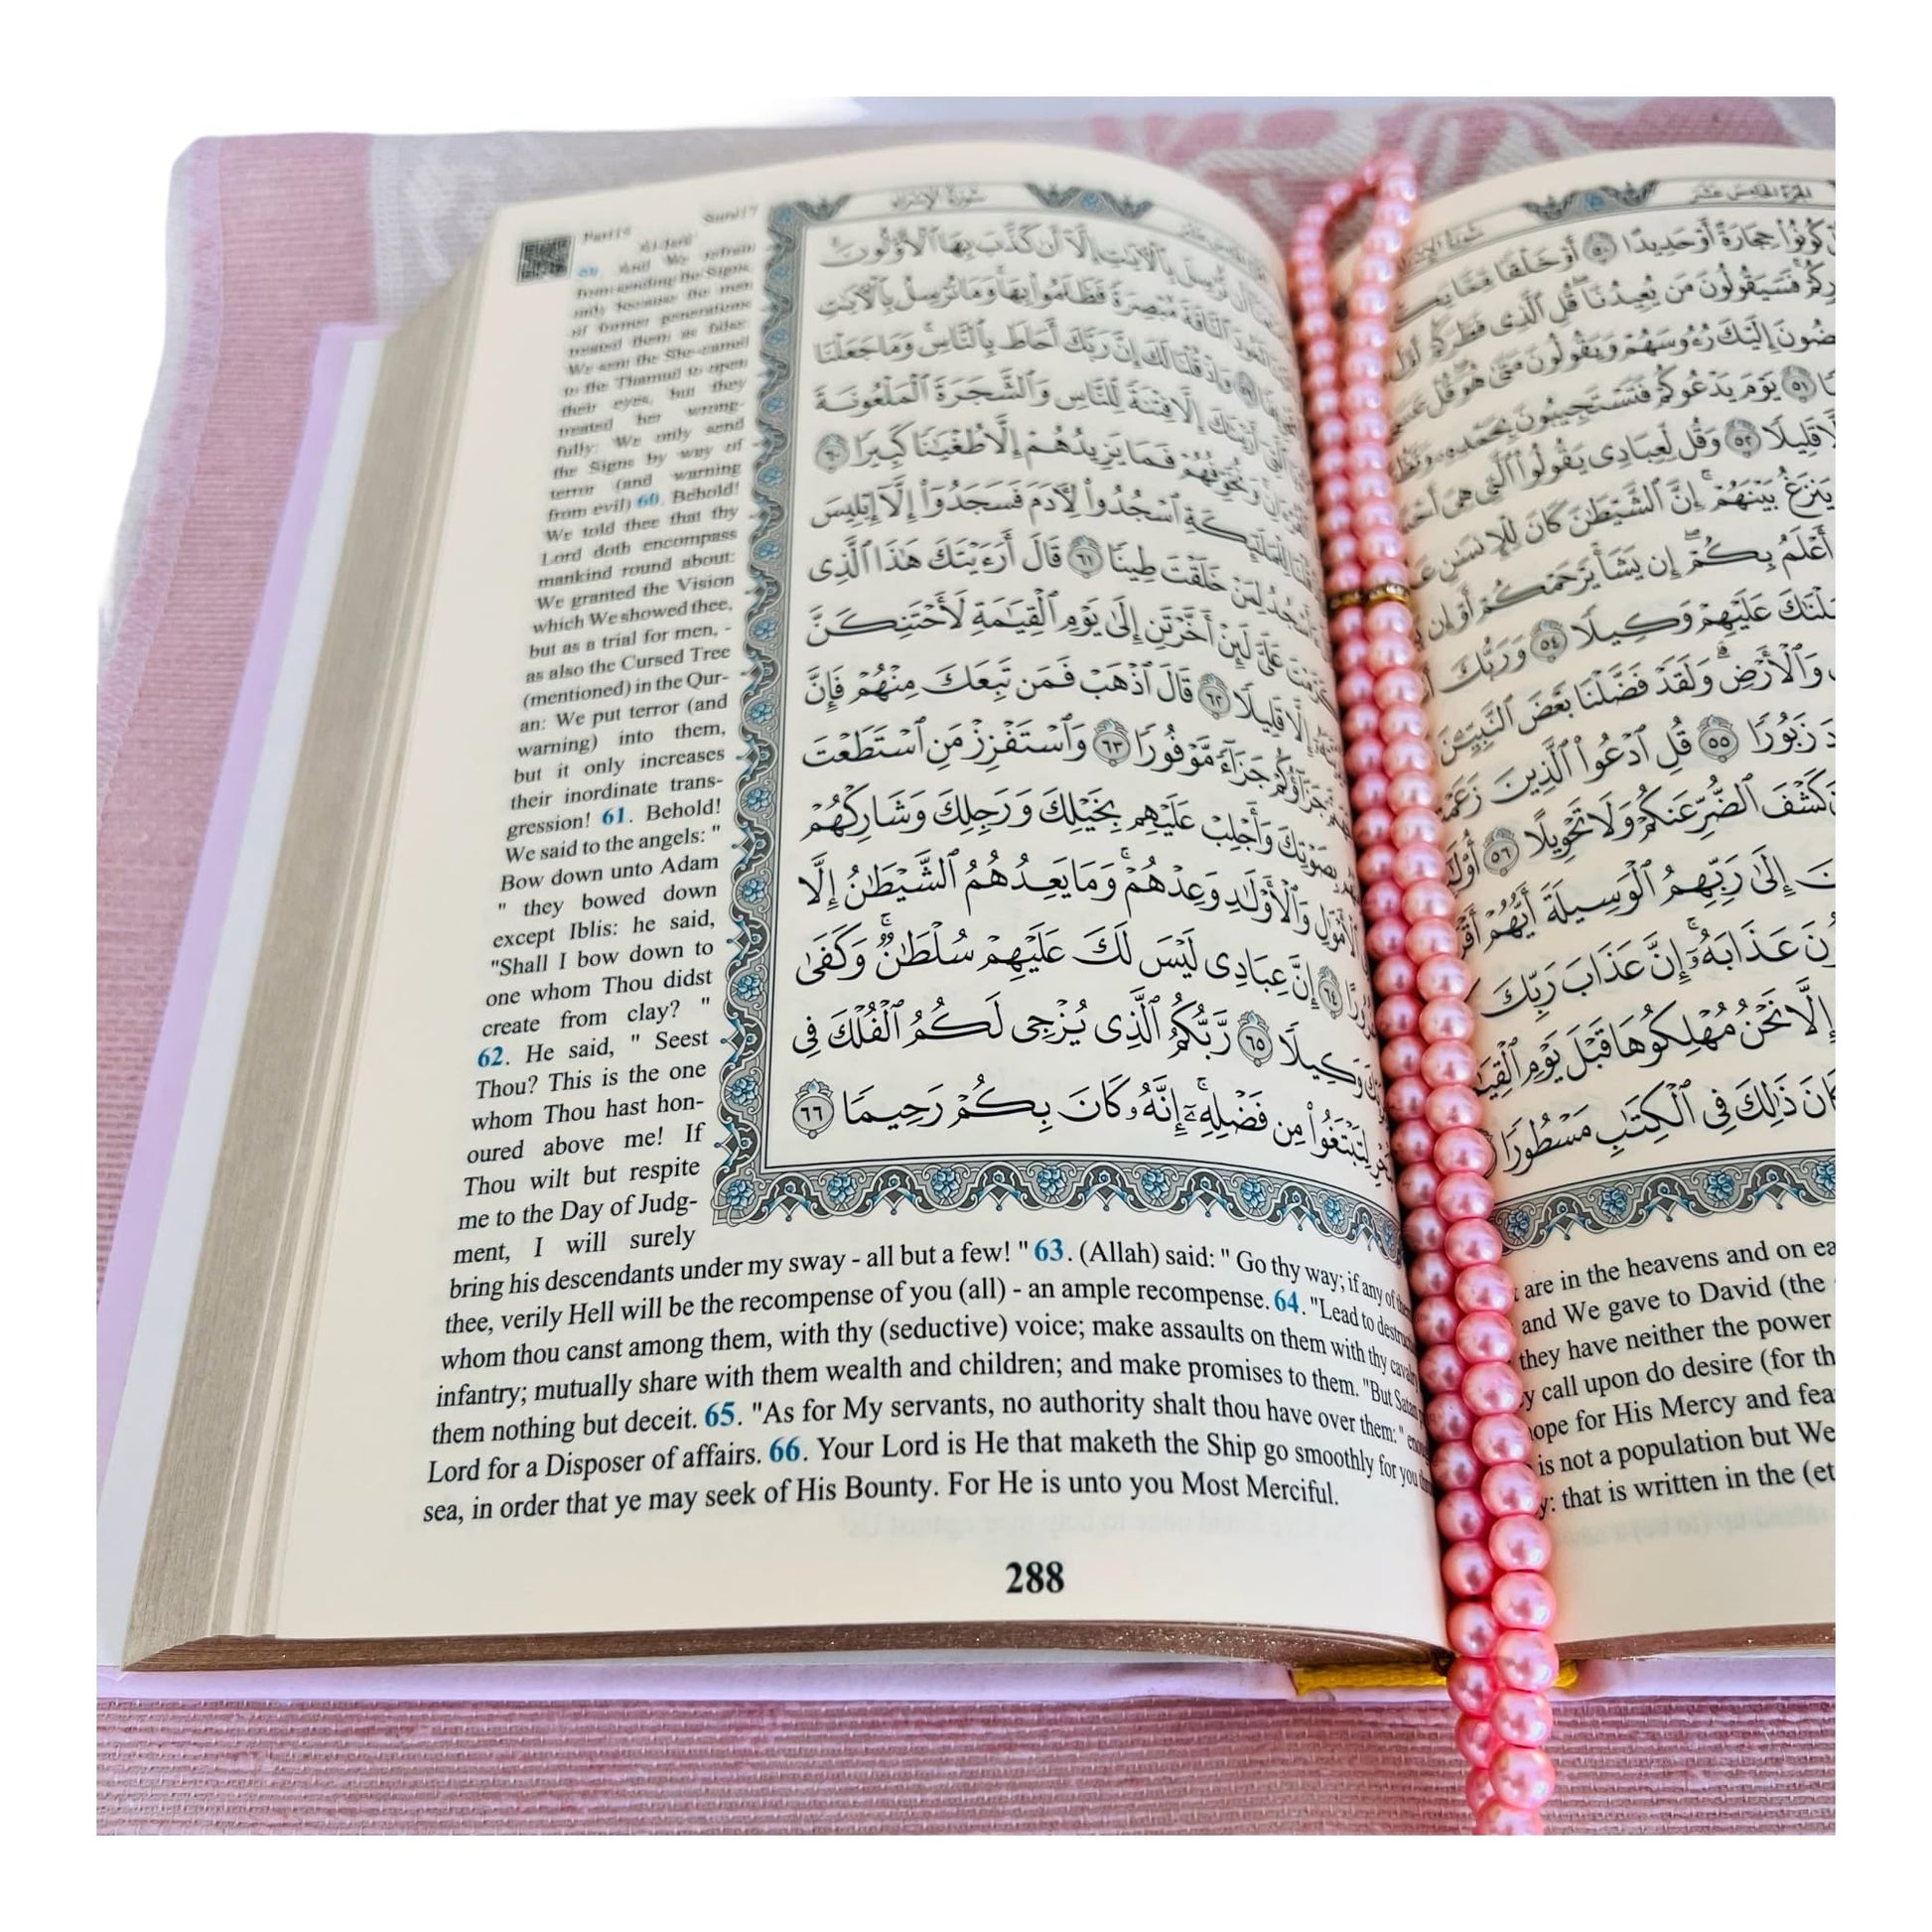 Part15 Sura17
سُورَةُ الإِسْرَاءِ
Al-Isra'
59. And We refrain
from sending the Signs,
only because the men
of former generations
treated them as false:
We sent the She-camel
to the Thamud to open
their eyes, but they
treated her wrong-
fully: We only send
the Signs by way of
terror (and warning
from evil) 60. Behold!
We told thee that thy
Lord doth encompass
mankind round about:
We granted the Vision
which We showed thee,
but as a trial for men, -
as also the Cursed Tree
(mentioned) in the Qur-
an: We put terror (and
warning) into them,
but it only increases
their inordinate trans-
gression! 61. Behold!
We said to the angels: "
Bow down unto Adam
" they bowed down
except Iblis: he said,
"Shall I bow down to
one whom Thou didst
create from clay? "
62. He said, " Seest
Thou? This is the one
whom Thou hast hon-
oured above me! If
Thou wilt but respite
me to the Day of Judg-
ment, I will surely
bring his descendants under my sway - all but a few! " 63. (Allah) said: " Go thy way; if any of them
thee, verily Hell will be the recompense of you (all) - an ample recompense. 64. "Lead to
whom thou canst among them, with thy (seductive) voice; make assaults on them with thy
infantry; mutually share with them wealth and children; and make promises to them. "But Satan
them nothing but deceit. 65. "As for My servants, no authority shalt thou have over them:"
Lord for a Disposer of affairs. 66. Your Lord is He that maketh the Ship go smoothly for you
sea, in order that ye may seek of His Bounty. For He is unto you Most Merciful.
نُّرْسِلَ بِٱلْـَٔايَـٰتِ إِلَّآ أَن كَذَّبَ بِهَا ٱلْأَوَّلُونَ ۚ
ثَمُودَ ٱلنَّاقَةَ مُبْصِرَةً فَظَلَمُوا۟ بِهَا ۚ وَمَا نُرْسِلُ بِٱلْـَٔايَـٰتِ
وَإِذْ قُلْنَا لَكَ إِنَّ رَبَّكَ أَحَاطَ بِٱلنَّاسِ ۚ وَمَا جَعَلْنَا
أَرَيْنَـٰكَ إِلَّا فِتْنَةً لِّلنَّاسِ وَٱلشَّجَرَةَ ٱلْمَلْعُونَةَ
وَنُخَوِّفُهُمْ فَمَا يَزِيدُهُمْ إِلَّا طُغْيَـٰنًا كَبِيرًا ٦٠
ٱسْجُدُوا۟ لِـَٔادَمَ فَسَجَدُوٓا۟ إِلَّآ إِبْلِيسَ
لِمَنْ خَلَقْتَ طِينًا ٦١ قَالَ أَرَءَيْتَكَ هَـٰذَا ٱلَّذِى
عَلَىَّ لَئِنْ أَخَّرْتَنِ إِلَىٰ يَوْمِ ٱلْقِيَـٰمَةِ لَأَحْتَنِكَنَّ
إِلَّا قَلِيلًا ٦٢ قَالَ ٱذْهَبْ فَمَن تَبِعَكَ مِنْهُمْ فَإِنَّ
جَزَآؤُكُمْ جَزَآءً مَّوْفُورًا ٦٣ وَٱسْتَفْزِزْ مَنِ ٱسْتَطَعْتَ
بِصَوْتِكَ وَأَجْلِبْ عَلَيْهِم بِخَيْلِكَ وَرَجِلِكَ وَشَارِكْهُمْ
وَٱلْأَوْلَـٰدِ وَعِدْهُمْ ۚ وَمَا يَعِدُهُمُ ٱلشَّيْطَـٰنُ إِلَّا
٦٤ إِنَّ عِبَادِى لَيْسَ لَكَ عَلَيْهِمْ سُلْطَـٰنٌ ۚ وَكَفَىٰ
وَكِيلًا ٦٥ رَّبُّكُمُ ٱلَّذِى يُزْجِى لَكُمُ ٱلْفُلْكَ فِى
لِتَبْتَغُوا۟ مِن فَضْلِهِۦٓ ۚ إِنَّهُۥ كَانَ بِكُمْ رَحِيمًا ٦٦
288
كُونُوا۟ حِجَارَةً أَوْ حَدِيدًا ٥٠ أَوْ خَلْقًا مِّمَّا
فَسَيَقُولُونَ مَن يُعِيدُنَا ۖ قُلِ ٱلَّذِى فَطَرَكُمْ أَوَّلَ
إِلَيْكَ رُءُوسَهُمْ وَيَقُولُونَ مَتَىٰ هُوَ ۖ قُلْ
٥١ يَوْمَ يَدْعُوكُمْ فَتَسْتَجِيبُونَ بِحَمْدِهِۦ
قَلِيلًا ٥٢ وَقُل لِّعِبَادِى يَقُولُوا۟ ٱلَّتِى هِىَ
يَنزَغُ بَيْنَهُمْ ۚ إِنَّ ٱلشَّيْطَـٰنَ كَانَ لِلْإِنسَـٰنِ
أَعْلَمُ بِكُمْ ۖ إِن يَشَأْ يَرْحَمْكُمْ أَوْ إِن
عَلَيْهِمْ وَكِيلًا ٥٤ وَرَبُّكَ
وَٱلْأَرْضِ ۗ وَلَقَدْ فَضَّلْنَا بَعْضَ ٱلنَّبِيِّـۧنَ
زَبُورًا ٥٥ قُلِ ٱدْعُوا۟ ٱلَّذِينَ
كَشْفَ ٱلضُّرِّ عَنكُمْ وَلَا تَحْوِيلًا ٥٦
إِلَىٰ رَبِّهِمُ ٱلْوَسِيلَةَ أَيُّهُمْ
عَذَابَهُۥٓ ۚ إِنَّ عَذَابَ رَبِّكَ
إِلَّا نَحْنُ مُهْلِكُوهَا قَبْلَ يَوْمِ
ذَٰلِكَ فِى ٱلْكِتَـٰبِ مَسْطُورًا
are in the heavens and on
and We gave to David (the
they have neither the power
call upon do desire (for
for His Mercy and
is not a population but We
that is written in the